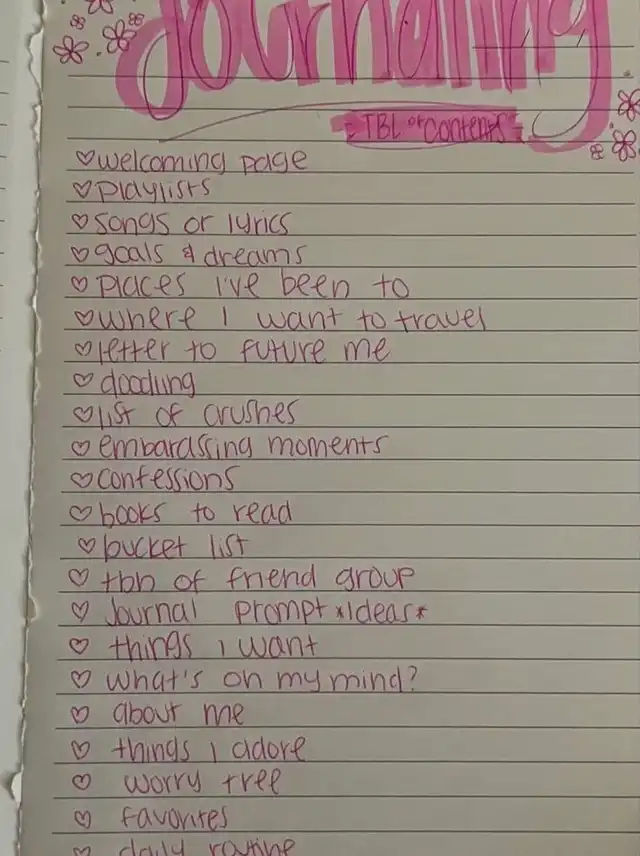 Journaling
TBL of Contents
welcoming page
playlists
songs or lyrics
goals & dreams
places I've been to
where I want to travel
letter to future me
doodling
list of crushes
embarassing moments
confessions
books to read
bucket list
tbh of friend group
Journal prompt *Ideas*
things I want
what's on my mind?
about me
things I adore
worry tree
favorites
daily routine